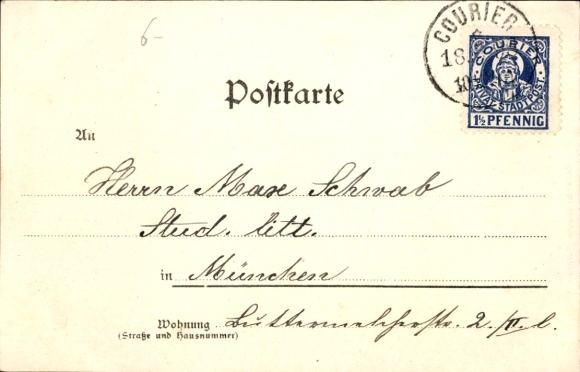 6-
COURIER
18
10
COURIER
PRIVAT-STADTPOST.
1½ PFENNIG
Postkarte
An
Herrn Max Schwab
Stud. litt.
in München
Wohnung Buttermelcherstr. 2./II. l.
(Straße und Hausnummer)